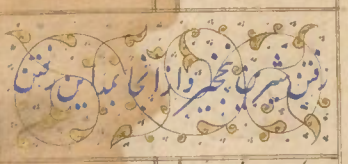 رفتن شیرین بنخجیر و از آنجا بمداین رفتن